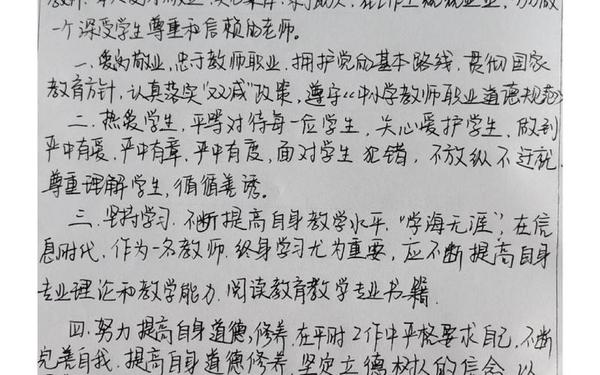 一个深受学生尊重和信赖的老师。
一、爱岗敬业,忠于教师职业,拥护党的基本路线,贯彻国家
教育方针,认真落实“双减”政策,遵守“中小学教师职业道德规范”
二、热爱学生,平等对待每一位学生,关心爱护学生,做到
严中有爱、严中有章、严中有度,面对学生犯错,不放纵不迁就,
尊重理解学生,循循善诱。
三、坚持学习,不断提高自身教学水平,“学海无涯”,在信
息时代,作为一名教师,终身学习尤为重要,应不断提高自身
专业理论和教学能力,阅读教育教学专业书籍。
四、努力提高自身道德修养,在平时工作中严格要求自己,不断
完善自我,提高自身道德修养,坚定立德树人的信念,以